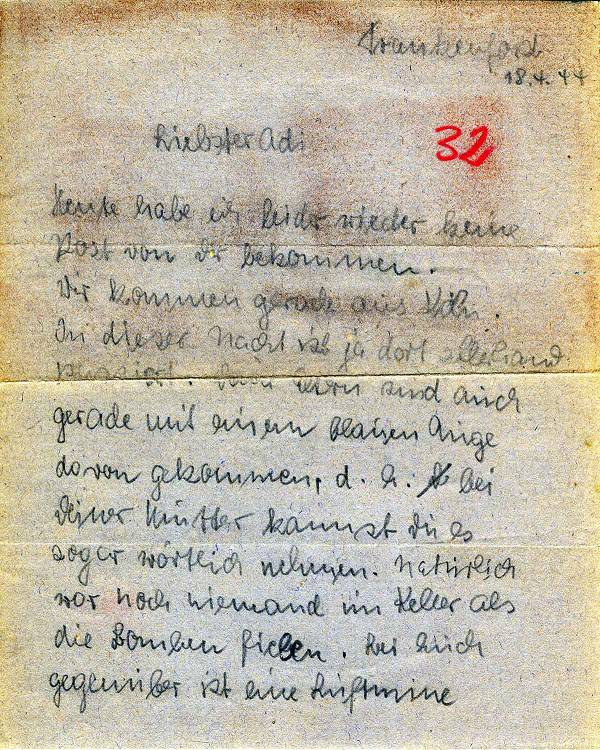 Frankenforst
18.4.44
Liebster Adi
32
Heute habe ich leider wieder keine
Post von dir bekommen.
Wir kommen gerade aus Köln.
In dieser Nacht ist ja dort allerhand
passiert. Deine Eltern sind auch
gerade mit einem blauen Auge
davon gekommen, d. h. bei
Deiner Mutter kannst du es
sogar wörtlich nehmen. Natürlich
war noch niemand im Keller als
die Bomben fielen. Bei Euch
gegenüber ist eine Luftmine